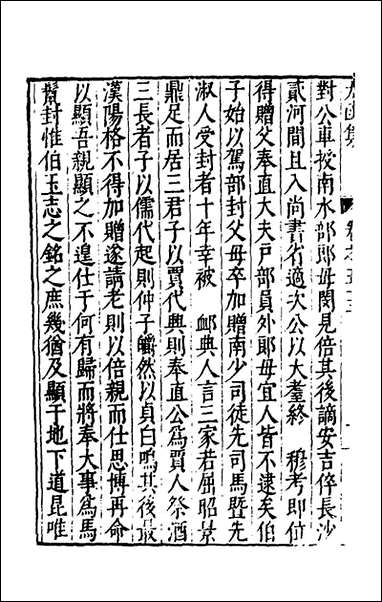 太函集 卷之五十三
對公車授南水部郎毋閔見倍其後謫安吉倅長沙
貳河間且入尚書省適次公以大耋終 穆考即位
得贈父奉直大夫戶部員外郎毋宜人皆不逮矣伯
子始以駕部封父毋卒加贈南少司徒先司馬暨先
淑人受封者十年幸被 䘏典人言三家若屈昭景
鼎足而居三君子以賈代興則奉直公爲賈人祭酒
三長者子以儒代起則仲子皭然以貞白鳴其後最
漢陽格不得加贈遂請老則以倍親而仕思博再命
以顯吾親顯之不遑仕于何有歸而將奉大事爲馬
鬣封惟伯玉志之銘之庶幾猶及顯于地下道昆唯